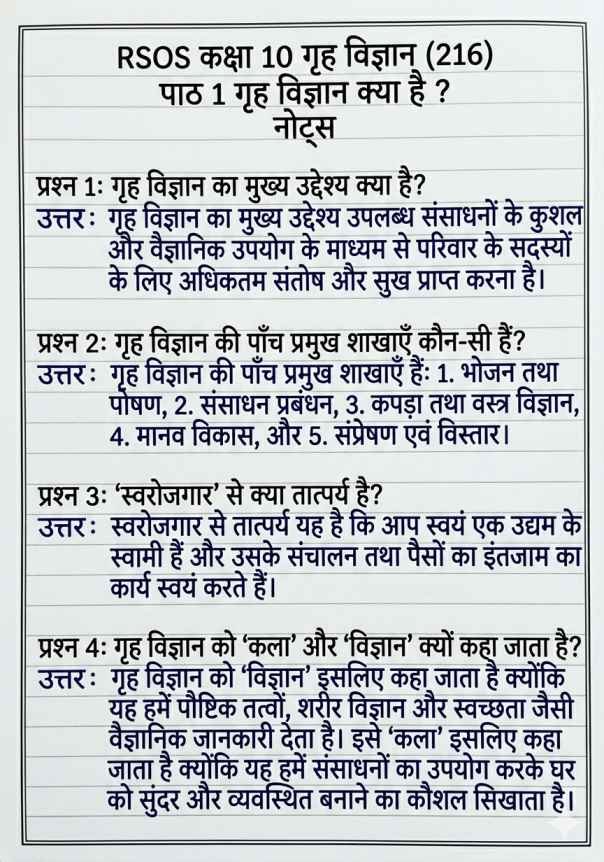 RSOS कक्षा 10 गृह विज्ञान (216)
पाठ 1 गृह विज्ञान क्या है ?
नोट्स
प्रश्न 1: गृह विज्ञान का मुख्य उद्देश्य क्या है?
उत्तर : गृह विज्ञान का मुख्य उद्देश्य उपलब्ध संसाधनों के कुशल
और वैज्ञानिक उपयोग के माध्यम से परिवार के सदस्यों
के लिए अधिकतम संतोष और सुख प्राप्त करना है।
प्रश्न 2: गृह विज्ञान की पाँच प्रमुख शाखाएँ कौन-सी हैं?
उत्तर : गृह विज्ञान की पाँच प्रमुख शाखाएँ हैं: 1. भोजन तथा
पोषण, 2. संसाधन प्रबंधन, 3. कपड़ा तथा वस्त्र विज्ञान,
4. मानव विकास, और 5. संप्रेषण एवं विस्तार।
प्रश्न 3: ‘स्वरोजगार’ से क्या तात्पर्य है?
उत्तर : स्वरोजगार से तात्पर्य यह है कि आप स्वयं एक उद्यम के
स्वामी हैं और उसके संचालन तथा पैसों का इंतजाम का
कार्य स्वयं करते हैं।
प्रश्न 4: गृह विज्ञान को ‘कला’ और ‘विज्ञान’ क्यों कहा जाता है?
उत्तर : गृह विज्ञान को ‘विज्ञान’ इसलिए कहा जाता है क्योंकि
यह हमें पौष्टिक तत्वों, शरीर विज्ञान और स्वच्छता जैसी
वैज्ञानिक जानकारी देता है। इसे ‘कला’ इसलिए कहा
जाता है क्योंकि यह हमें संसाधनों का उपयोग करके घर
को सुंदर और व्यवस्थित बनाने का कौशल सिखाता है।